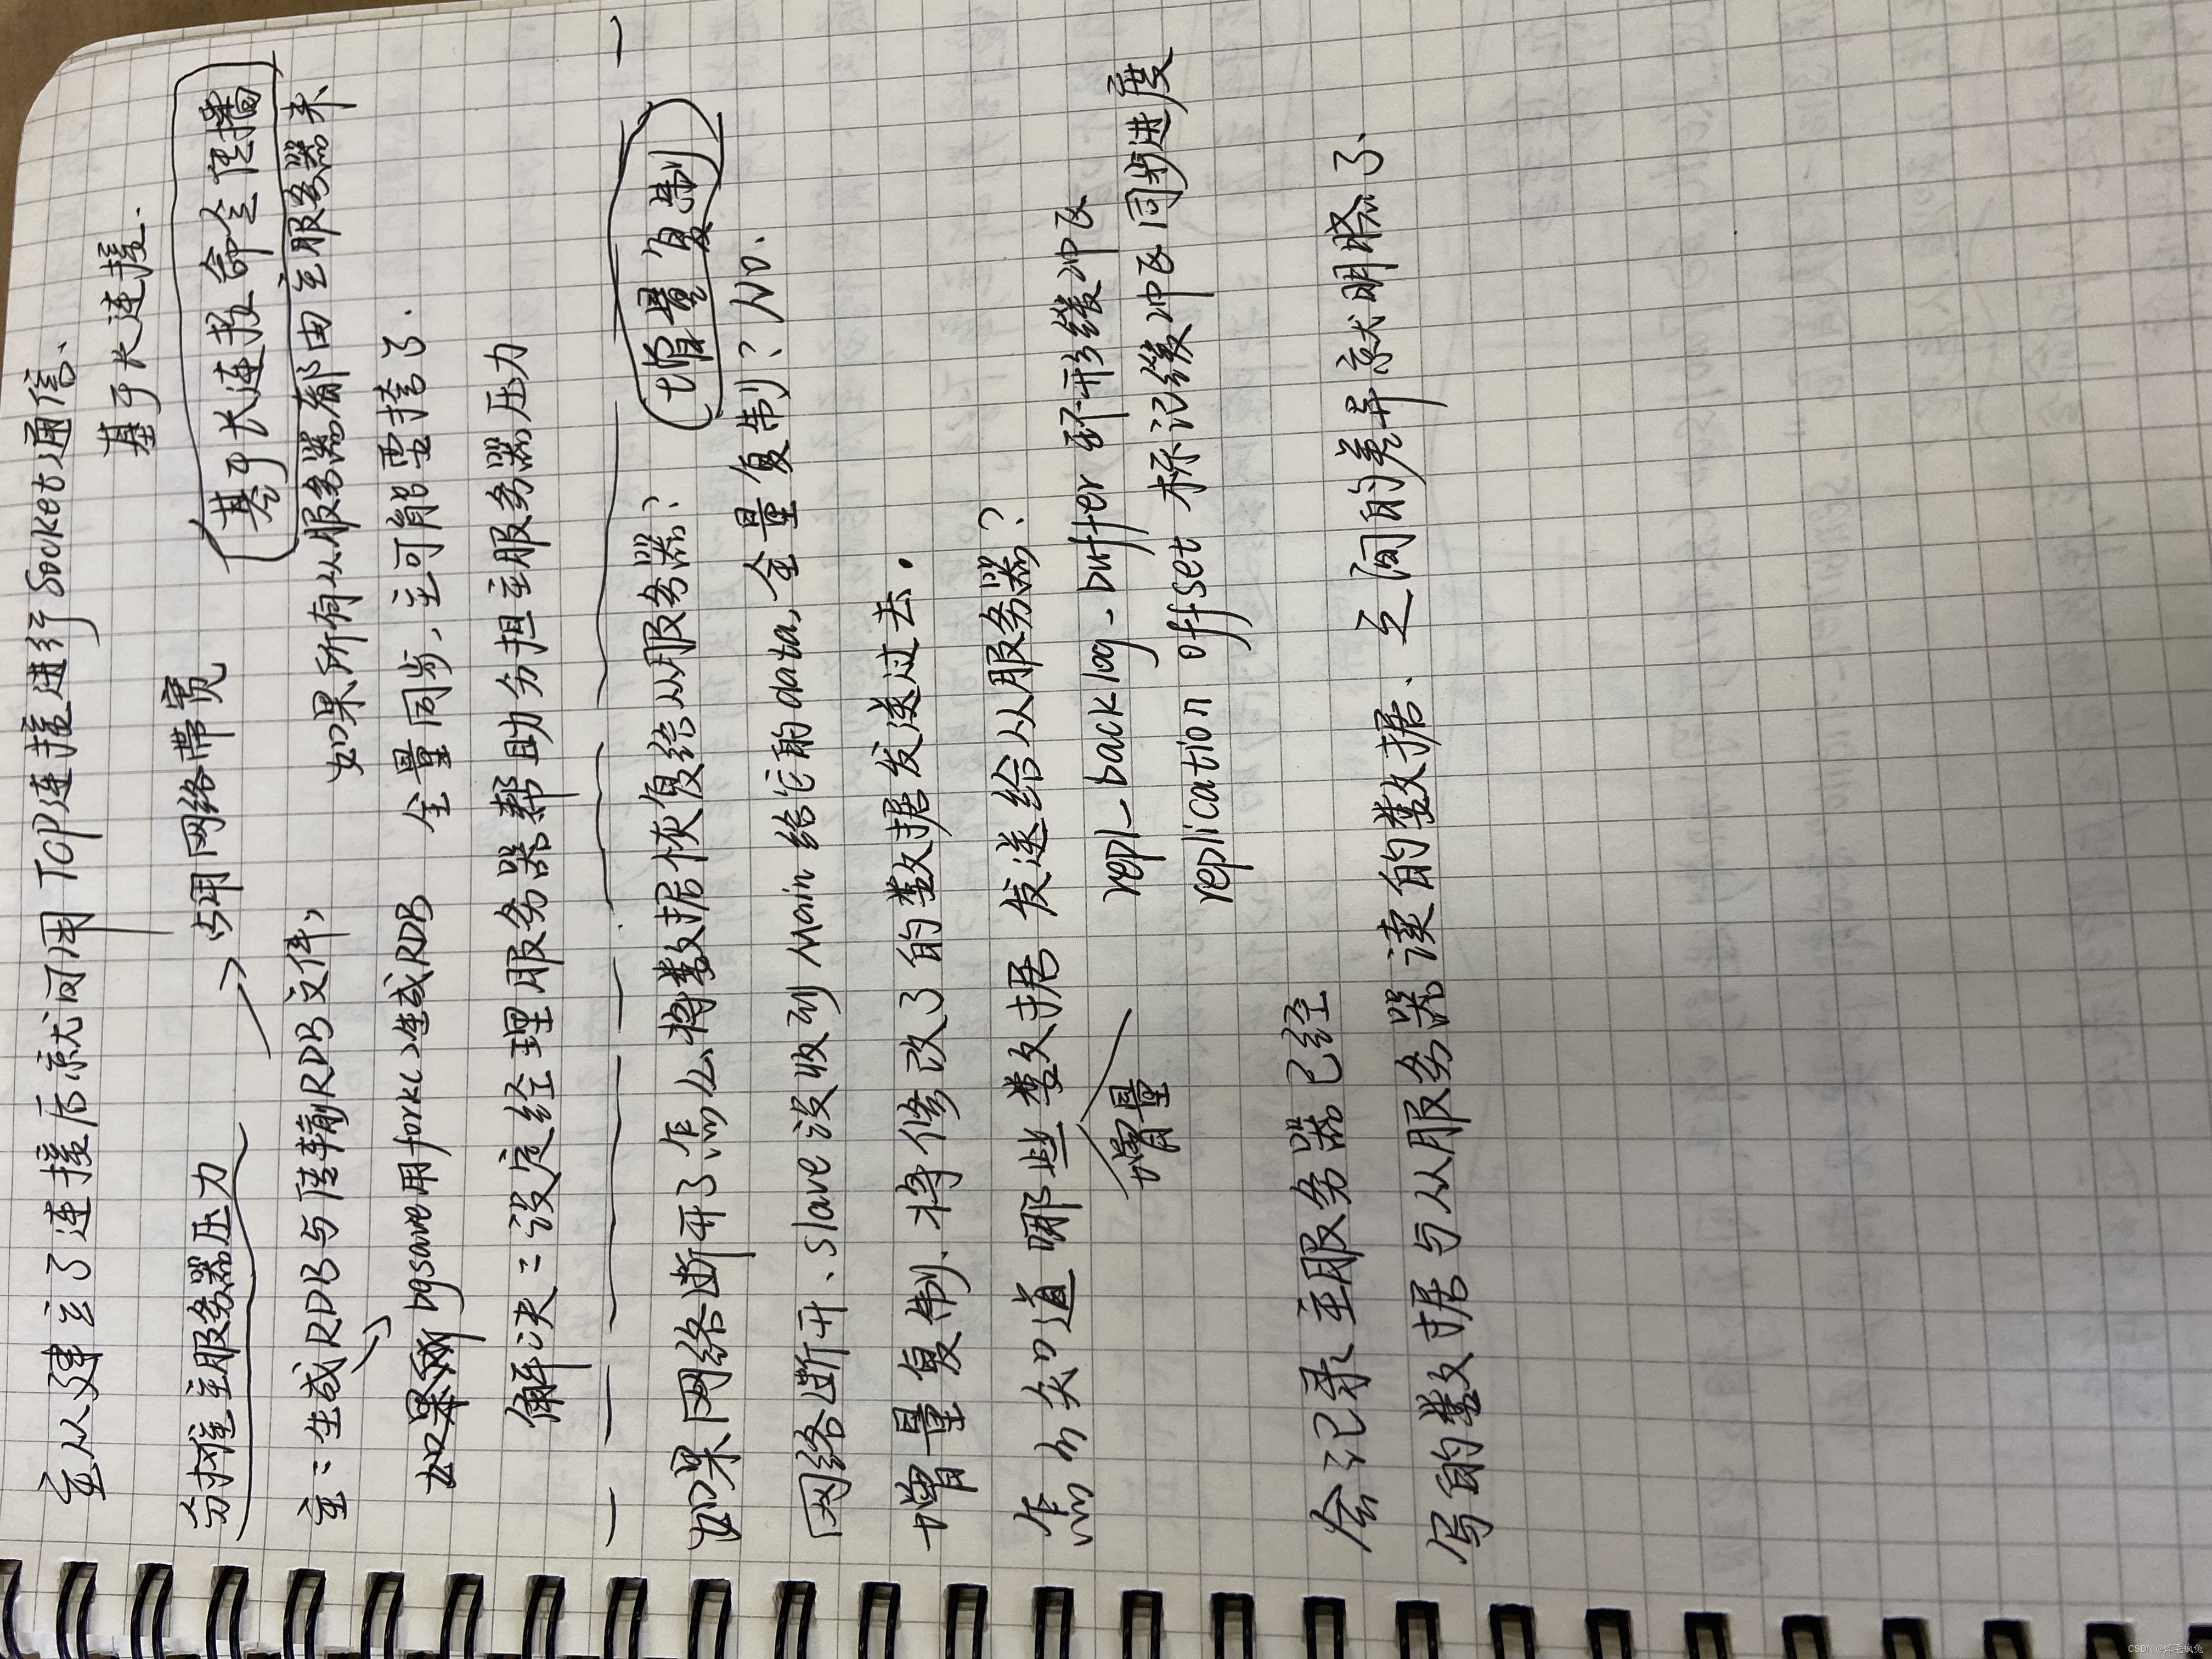 主从建立了连接后就可用TCP连接进行Socket通信、
基于长连接.
分摊主服务器压力
→占用网络带宽
基于长连接命令传播
主:生成RDB与传输RDB文件,
如果所有从服务器都由主服务器来
bgsave用fork()生成RDB
全量同步、主可能雪挎了.
解决:设定经理服务器帮助分担主服务器压力
增量复制
如果网络断开了怎么将数据恢复给从服务器?
网络断开、slave没收到Main给它的data,全量复制?NO.
增量复制、将修改了的数据发送过去.
怎么知道哪些数据发送给从服务器?
增量
repl_backlog_buffer 环形缓冲区
replication offset 标记缓冲区同步进度
会记录主服务器已经
写的数据与从服务器读的数据.之间的差异就明晓了.
CSDN @炸毛疯兔